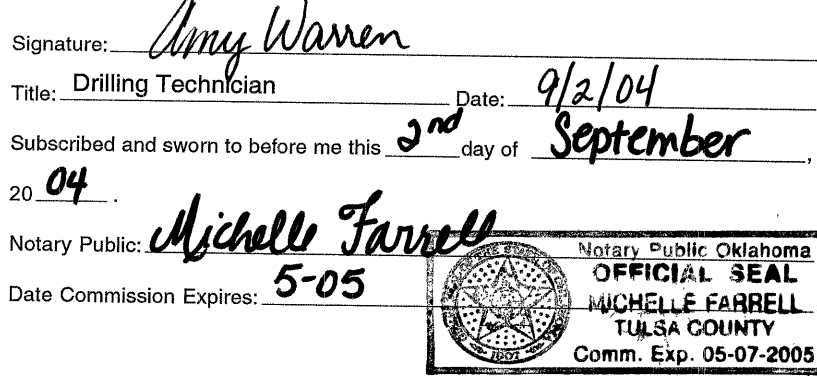 Signature: Amy Warren
Title: Drilling Technician Date: 9/2/04
Subscribed and sworn to before me this 2nd day of September,
20 04 .
Notary Public: Michelle Farrell
Date Commission Expires: 5-05
Notary Public Oklahoma
OFFICIAL SEAL
MICHELLE FARRELL
TULSA COUNTY
Comm. Exp. 05-07-2005
1907